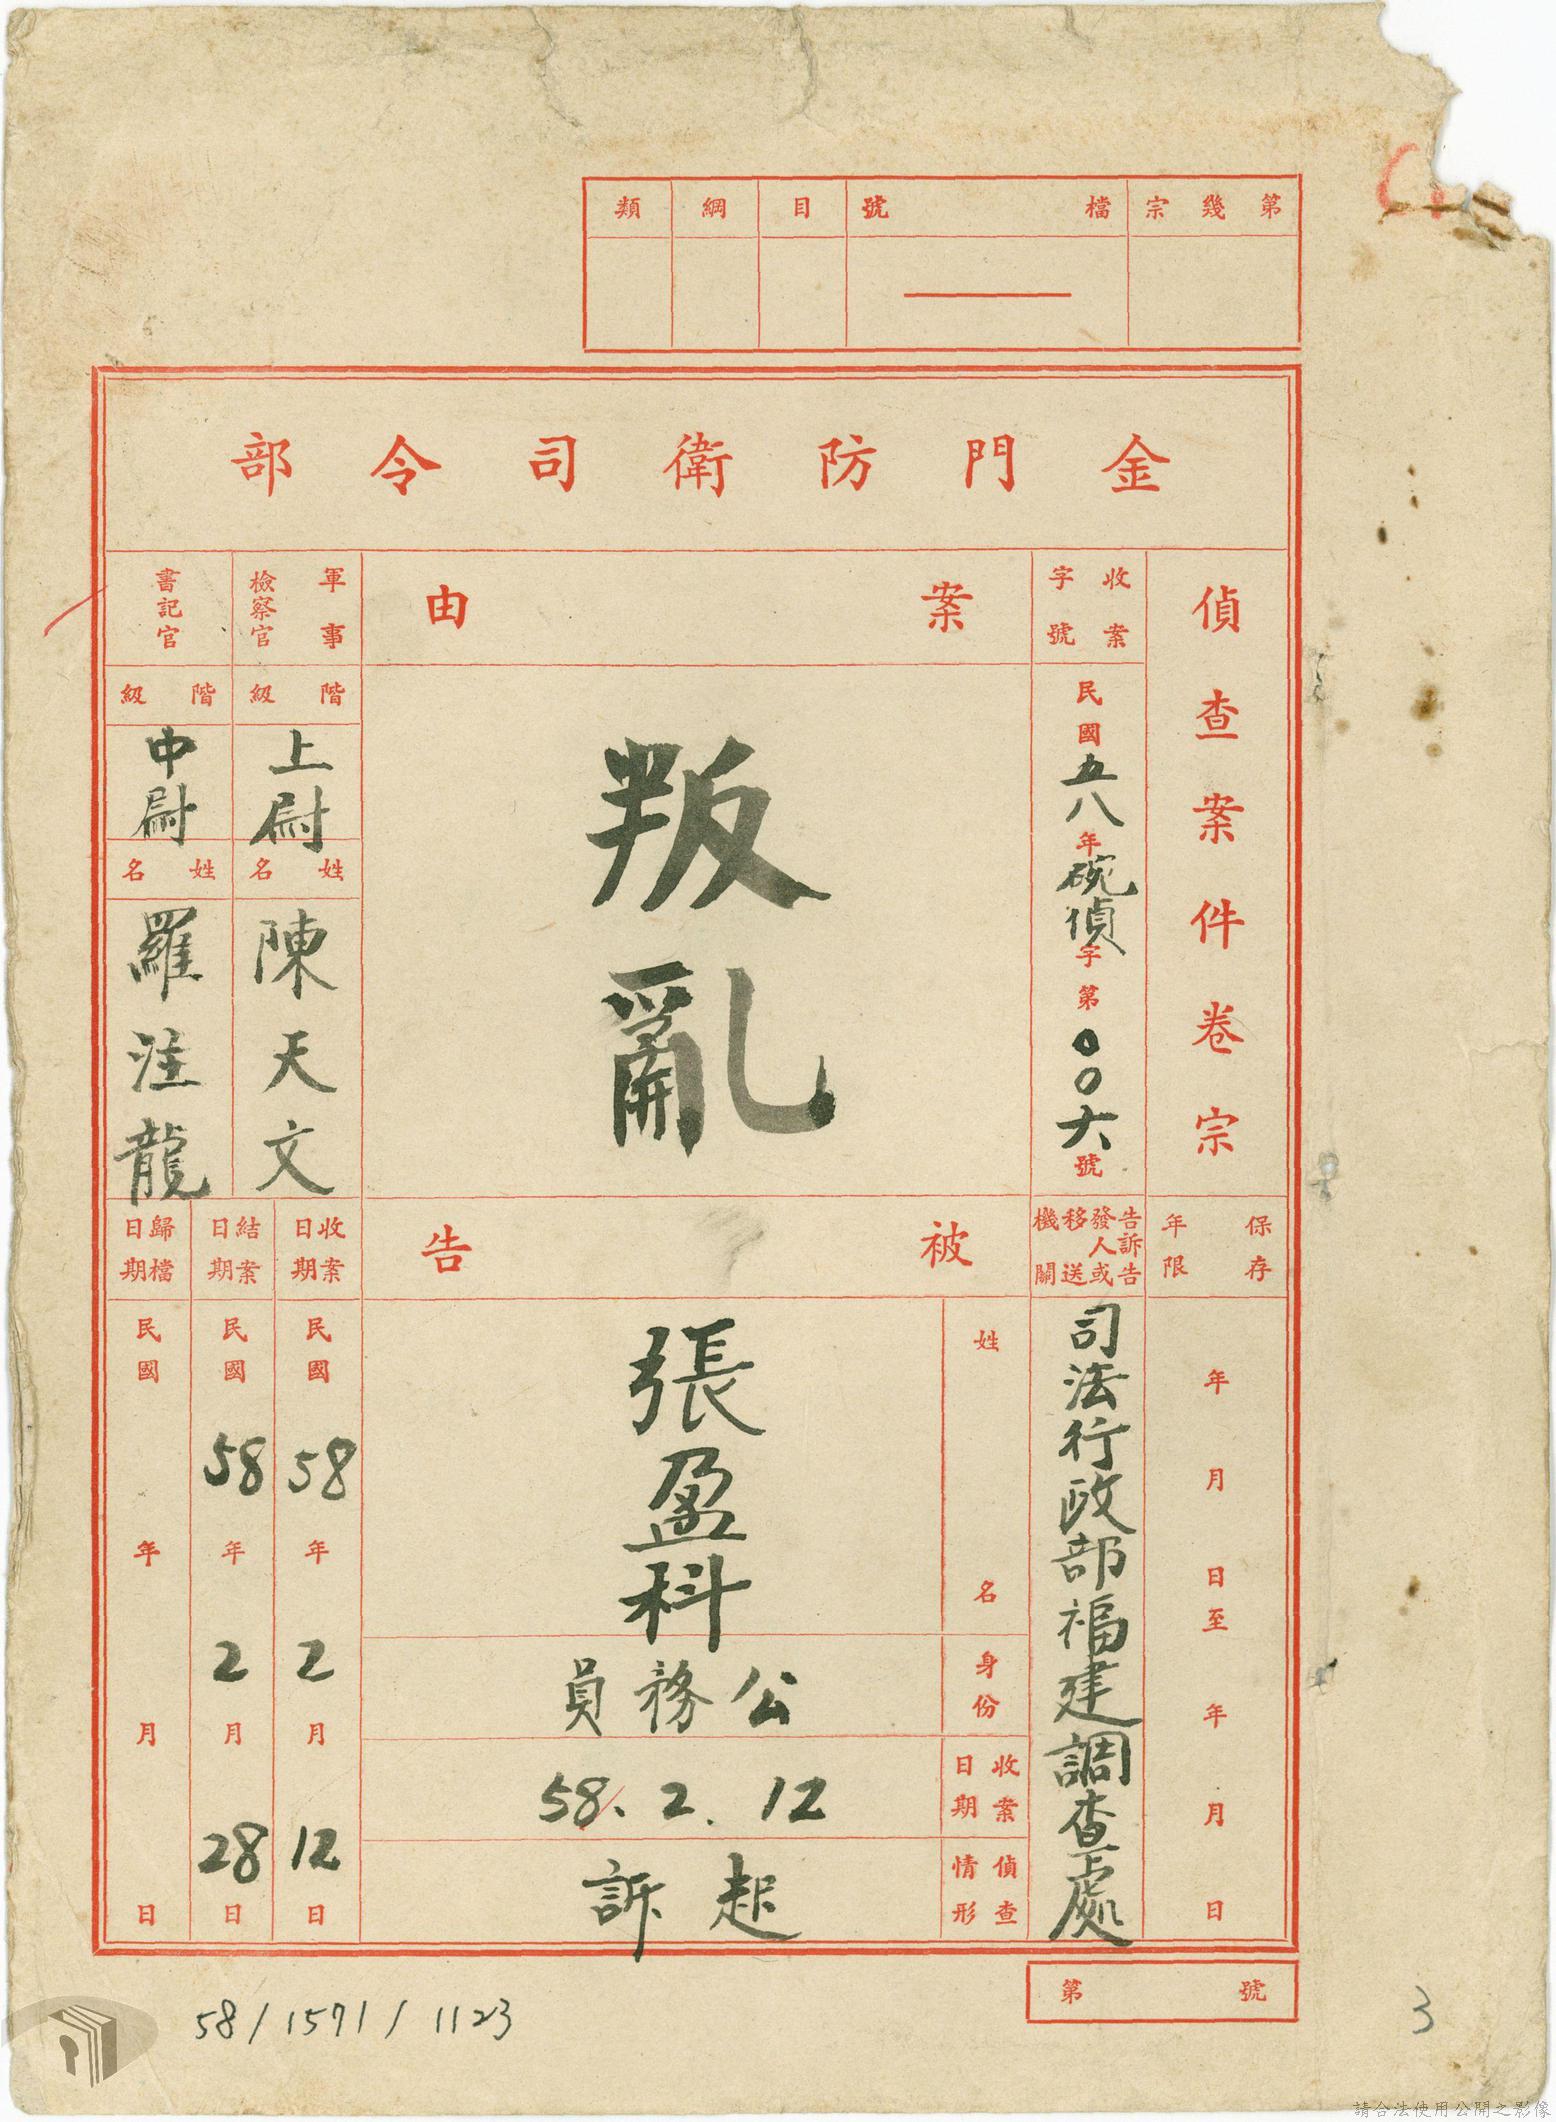 第幾宗
檔號
目
綱
類
金門防衛司令部
偵查案件卷宗
收案字號
民國五八年碗偵字第00六號
案由
叛亂
軍事檢察官
階級
上尉
姓名
陳天文
書記官
階級
中尉
姓名
羅注龍
保存年限
年月日至年月日
告訴告發人或移送機關
司法行政部福建調查處
被告
姓名
張盈科
身份
公務員
收案日期
58.2.12
偵查情形
起訴
收案日期
民國58年2月12日
結案日期
民國58年2月28日
歸檔日期
民國年月日
第號
58/1571/1123
3
請合法使用公開之影像